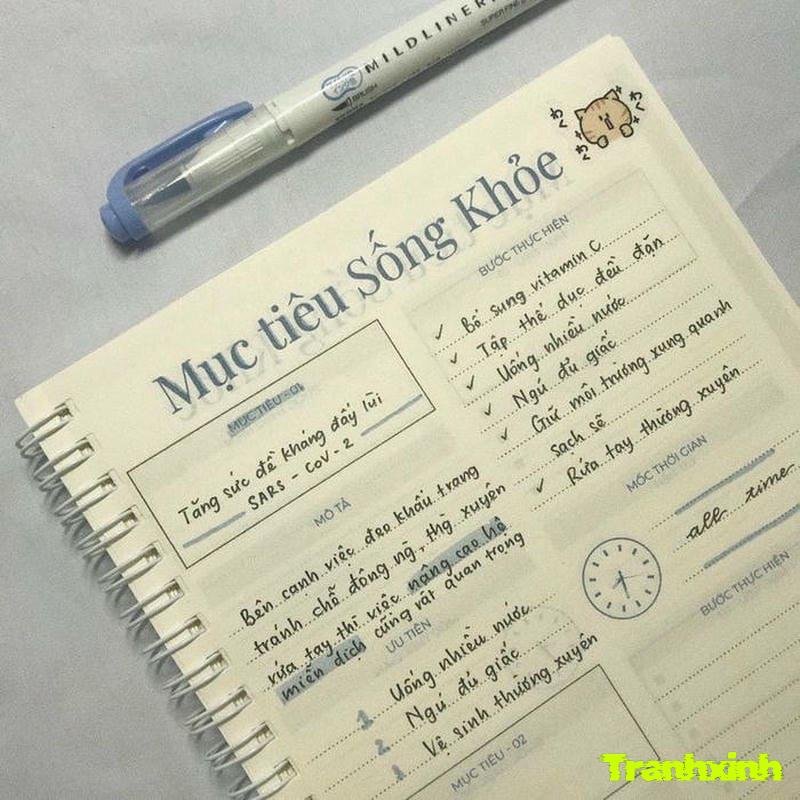 MILDLINER
SUPER FINE &
BRUSH
Mục tiêu Sống Khỏe
MỤC TIÊU - 01
Tăng sức đề kháng đẩy lùi
SARS - CoV - 2
MÔ TẢ
Bên cạnh việc đeo khẩu trang
tránh chỗ đông ng, thg xuyên
rửa tay thì việc nâng cao hệ
miễn dịch cũng rất quan trọng
ƯU TIÊN
1 Uống nhiều nước
2 Ngủ đủ giấc
3 Vệ sinh thường xuyên
MỤC TIÊU - 02
BƯỚC THỰC HIỆN
✓ Bổ sung vitamin C
✓ Tập thể dục đều đặn
✓ Uống nhiều nước
✓ Ngủ đủ giấc
✓ Giữ môi trường xung quanh
sạch sẽ
✓ Rửa tay thường xuyên
MỐC THỜI GIAN
all time
BƯỚC THỰC HIỆN
Tranhxinh